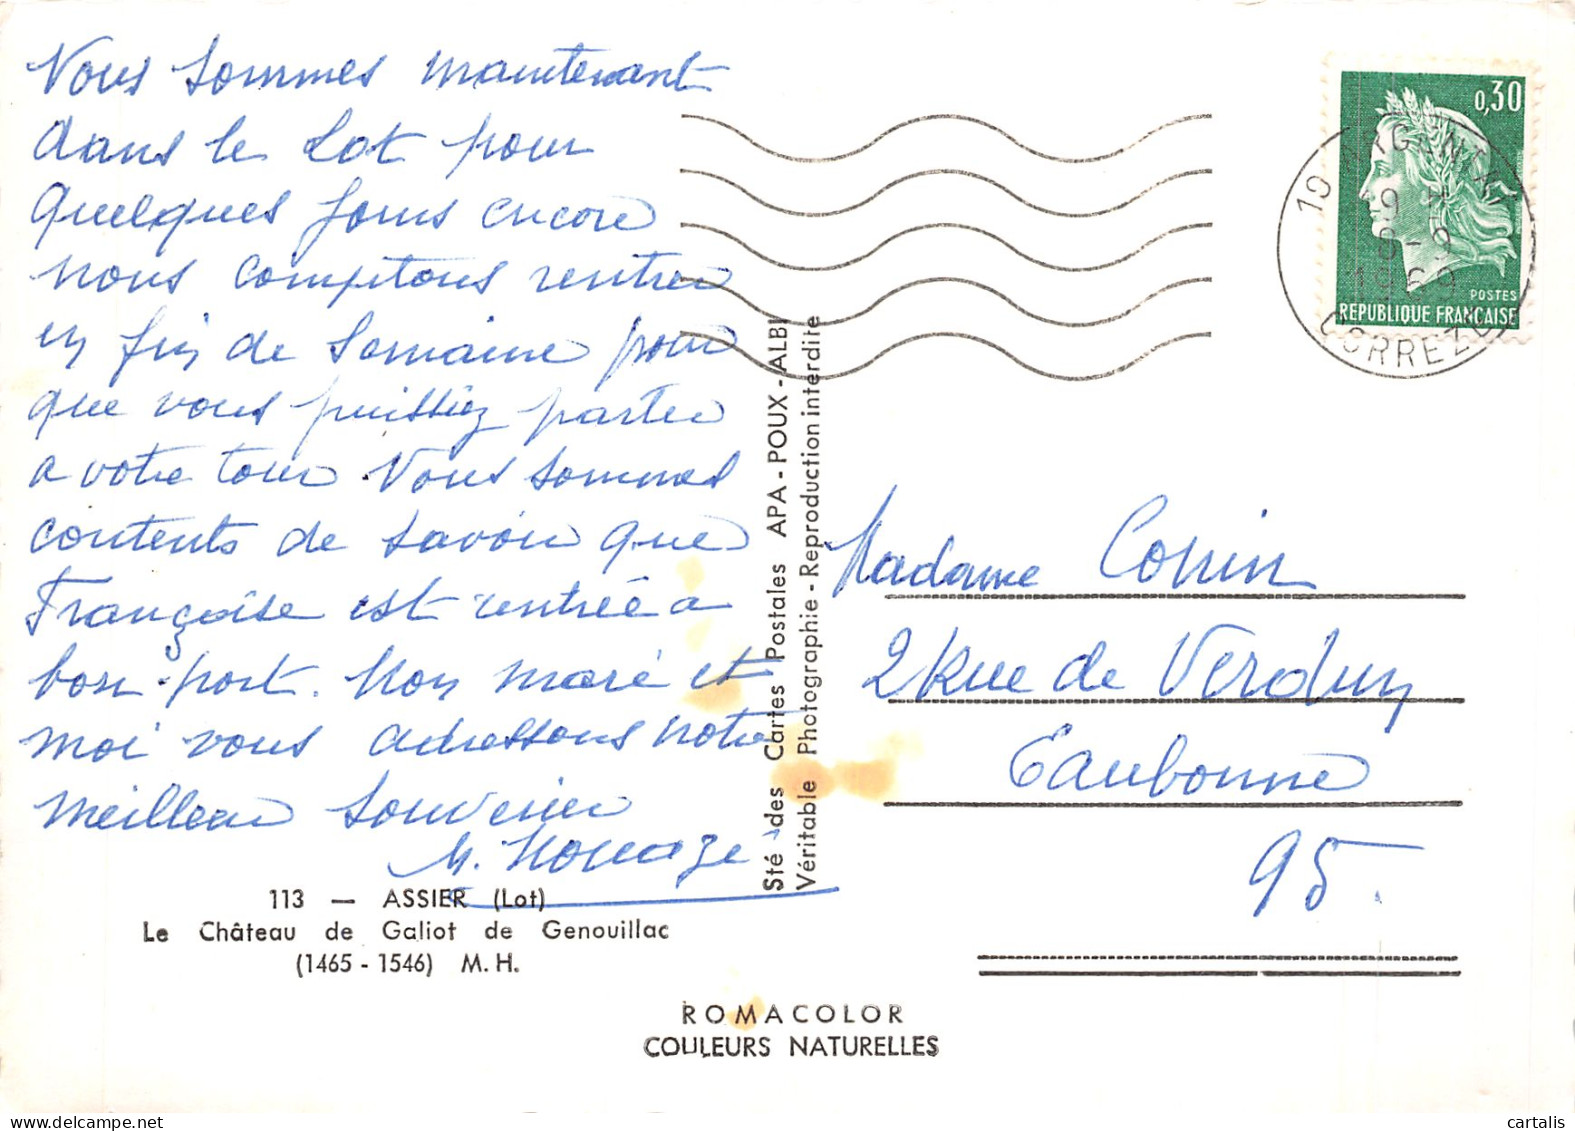 Nous sommes maintenant
dans le Lot pour
quelques jours encore
nous comptons rentrer
en fin de semaine pour
que vous puissiez partir
a votre tour. Vous sommes
contents de savoir que
Françoise est rentrée a
bon port. Mon mari et
moi vous adressons notre
meilleur souvenir
M.
113 — ASSIER (Lot)
Le Château de Galiot de Genouillac
(1465 - 1546) M. H.
ROMACOLOR
COULEURS NATURELLES
Sté des Cartes Postales APA - POUX - ALBI
Véritable Photographie - Reproduction interdite
0,30
POSTES
REPUBLIQUE FRANÇAISE
19 ARGENTAT
19 H
6-9
1969
CORREZE
Madame
2 Rue de Verdun
Eaubonne
95.
cartalis
www.delcampe.net